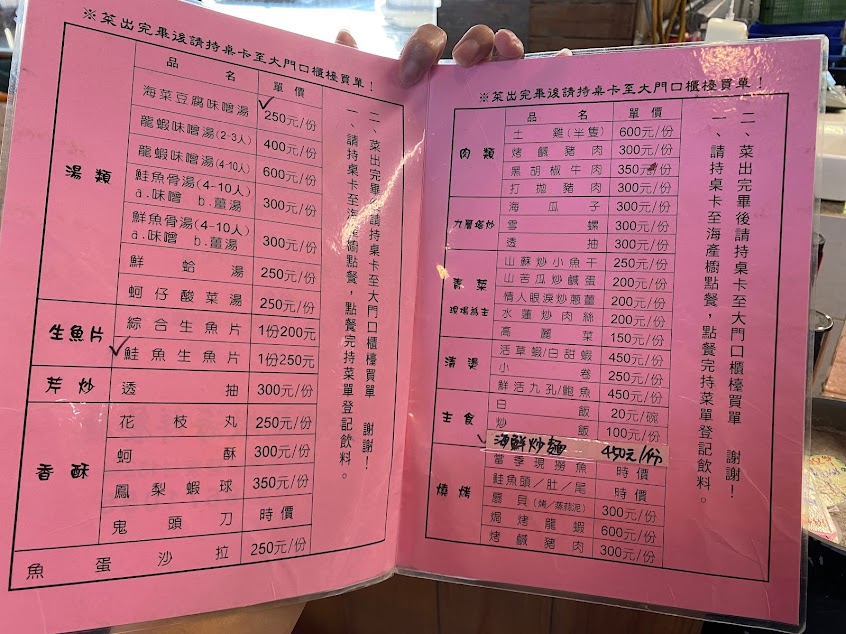 ※菜出完畢後請持桌卡至大門口櫃檯買單！
品名 單價
湯類
海菜豆腐味噌湯 250元/份
龍蝦味噌湯(2-3人) 400元/份
龍蝦味噌湯(4-10人) 600元/份
鮭魚骨湯(4-10人)
a.味噌 b.薑湯 300元/份
鮮魚骨湯(4-10人)
a.味噌 b.薑湯 300元/份
鮮蛤湯 250元/份
蚵仔酸菜湯 250元/份
生魚片
綜合生魚片 1份200元
鮭魚生魚片 1份250元
芹炒
透抽 300元/份
香酥
花枝丸 250元/份
蚵酥 300元/份
鳳梨蝦球 350元/份
鬼頭刀 時價
魚蛋沙拉 250元/份
二、菜出完畢後請持桌卡至大門口櫃檯買單 謝謝！
一、請持桌卡至海產櫥點餐，點餐完持菜單登記飲料。
※菜出完畢後請持桌卡至大門口櫃檯買單！
品名 單價
肉類
土雞(半隻) 600元/份
烤鹹豬肉 300元/份
黑胡椒牛肉 350元/份
打拋豬肉 300元/份
九層塔炒
海瓜子 300元/份
雪螺 300元/份
透抽 300元/份
青菜
現場為主
山蘇炒小魚干 250元/份
山苦瓜炒鹹蛋 200元/份
情人眼淚炒蔥薑 200元/份
水蓮炒肉絲 200元/份
高麗菜 150元/份
清燙
活草蝦/白甜蝦 450元/份
小卷 250元/份
鮮活九孔/鮑魚 450元/份
主食
白飯 20元/碗
炒飯 100元/份
海鮮炒麵 450元/份
燒烤
當季現撈魚 時價
鮭魚頭/肚/尾 時價
扇貝(烤/蒸蒜泥) 300元/份
焗烤龍蝦 600元/份
烤鹹豬肉 300元/份
二、菜出完畢後請持桌卡至大門口櫃檯買單 謝謝！
一、請持桌卡至海產櫥點餐，點餐完持菜單登記飲料。